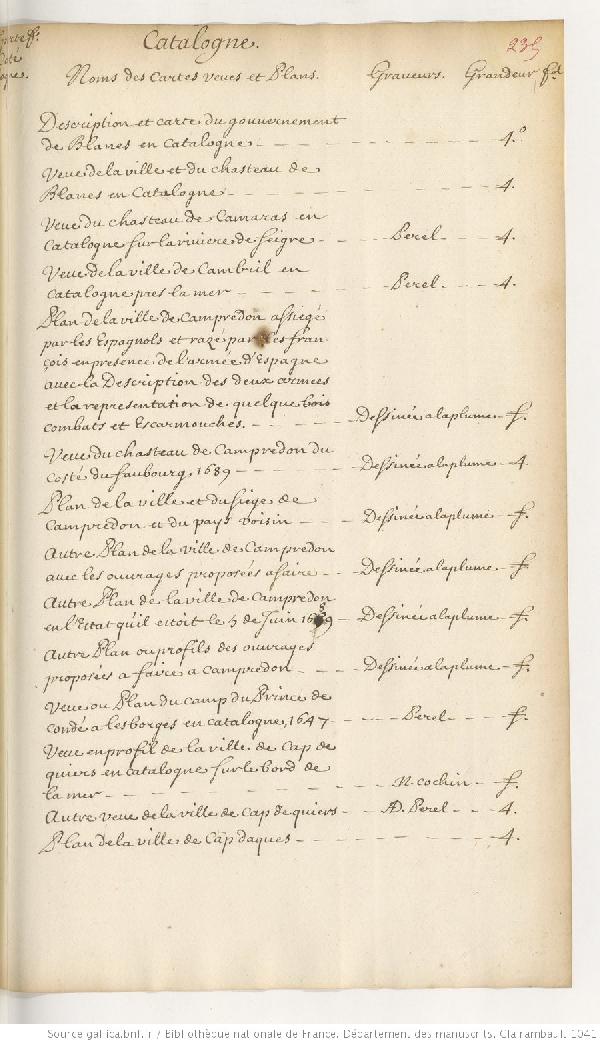 Catalogne.
235
Noms des Cartes veues et Plans. Graveurs. Grandeur
Description et carte du gouvernement
de Blanes en Catalogne 4.º
Veue de la ville et du chasteau de
Blanes en Catalogne 4.
Veue du chasteau de Camaras en
Catalogne sur la riviere de Seigre Perel 4.
Veue de la ville de Cambril en
Catalogne pres la mer Perel 4.
Plan de la ville de Campredon assiegé
par les Espagnols et razé par les fran
çois en presence de l'armée d'Espagne
avec la Description des deux armées
et la representation de quelque trois
combats et Escarmouches. Dessinée a la plume f.
Veue du chasteau de Campredon du
costé du faubourg, 1689 Dessinée a la plume 4.
Plan de la ville et du siege de
Campredon et du pays voisin Dessinée a la plume f.
Autre Plan de la ville de Campredon
avec les ouvrages proposées a faire Dessinée a la plume f.
Autre Plan de la ville de Campredon
en l'Estat qu'il estoit le 5 de Juin 1689 Dessinée a la plume f.
Autre Plan ou profils des ouvrages
proposées a faire a Campredon Dessinée a la plume f.
Veue ou Plan du camp du Prince de
Condé a les borges en catalogne, 1647 Perel f.
Veue en profil de la ville de Cap de
quiers en catalogne sur le bord de
la mer N. cochin f.
Autre veue de la ville de Cap de quiers AD. Perel 4.
Plan de la ville de Cap daques 4.
Source gallica.bnf.fr / Bibliothèque nationale de France. Département des manuscrits. Clairambault 1041